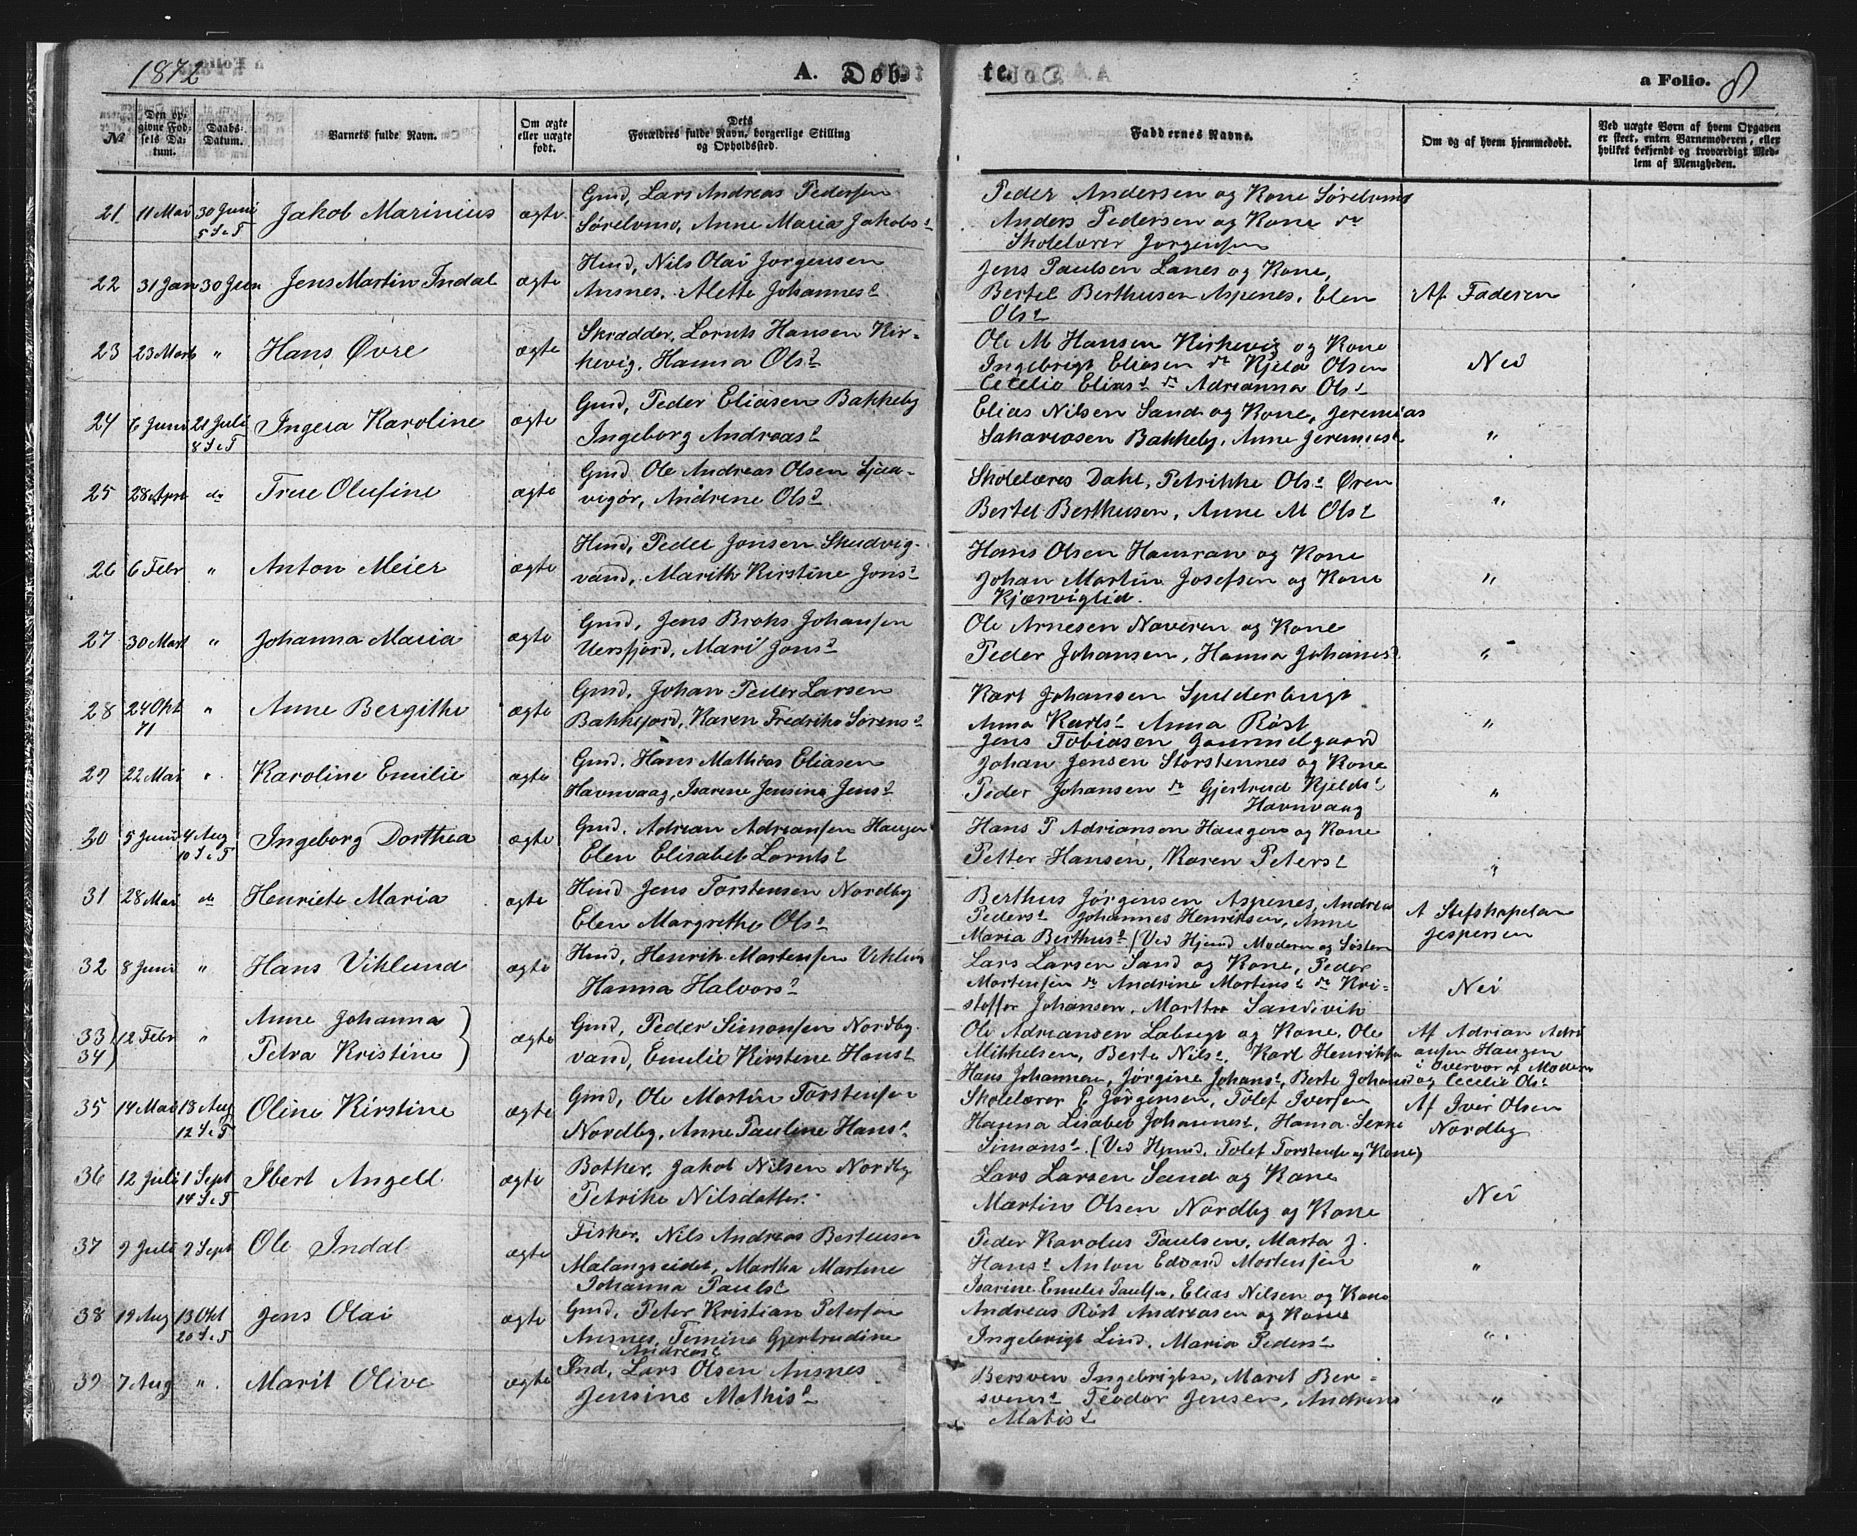 1872
A. Døb-
te.
a Folio. 8
№
Den op-
givne Fød-
sels Da-
tum.
Daabs-
Datum.
Barnets fulde Navn.
Om ægte
eller uægte
født.
Dets
Forældres fulde Navn, borgerlige Stilling
og Opholdssted.
Faddernes Navne.
Om og af hvem hjemmedøbt.
Ved uægte Børn af hvem Opgaven
er skeet, enten Barnemoderen, eller
hvilket bekjendt og troværdigt Med-
lem af Menigheden.
21 11 Mai 30 Juni Jakob Marinius ægte Gmd, Lars Andreas Pedersen
5 S. e. T
Anne Maria Jakobs
Peder Andersen og Kone
Anders Pedersen og Kone do
Skolelærer Jørgensen
22 31 Jan 30 Juni Jens Martin Indal ægte Hmd, Nils Olai Jørgensen
Ansnes, Alette Johannesd
Jens Paulsen Lanes og Kone,
Bertel Berthusen Aspenes, Elen
Olsd
Af Faderen
23 23 Marts " Hans Øvre ægte Skrædder, Lornts Hansen Kir-
kevig, Hanna Olsd
Ole M Hansen Kirkevig og Kone
Ingebrigt Eliasen do Kjela Olsen
Cecelie Eliasd do Adrianna Olsd
Nei
24 6 Juni 21 Juli Ingera Karoline ægte Gmd, Peder Eliasen Bakkeby
8 S. e. T
Ingeborg Andreasd
Elias Nilsen Sand og Kone, Jeremias
Sakariasen Bakkeby, Anne Jeremiasd
"
25 28 April do Trine Olufine ægte Gmd Ole Andreas Olsen
Andrine Olsd
Skolelærer Dahl, Petrikke Olsd Øren
Bertel Berthusen, Anne M Olsd
"
26 6 Febr " Anton Meier ægte Hmd, Peder Jonsen Skudvig-
vand, Marith Kirstine Jonsd
Hans Olsen og Kone
Johan Martin Josefsen og Kone
Kjærviglid.
"
27 30 Mart " Johanna Maria ægte Gmd, Jens Broks Johansen
Uersfjord, Mari Jonsd
Ole Arnesen Naveren og Kone
Peder Johansen, Hanna Johansd
"
28 24 Okt " Anne Bergithe ægte Gmd, Johan Peder Larsen
71
Bakkefjord, Karen Fredrike Sørensd
Karl Johansen Spilderbugt
Anna Karlsd Anna Röst
Jens Tobiasen Gammelgaard
"
29 22 Mai " Karoline Emilie ægte Gmd, Hans Mathias Eliasen
Havnvaag, Isarine Jensine Jensd
Johan Jensen Storstennes og Kone
Peder Johansen do Gjertrud Kjeldsd
Havnvaag
"
30 5 Juni 4 Aug Ingeborg Dorthea ægte Gmd. Adrian Adriansen Haugen
10 S. e. T
Elen Elisabet Lorntsd
Hans P Adriansen Haugen og Kone
Petter Hansen, Karen Petersd
"
31 28 Mai do Henriete Maria ægte Hmd Jens Torstensen Nordby
Elen Margrethe Olsd
Berthus Jørgensen Aspenes, Andrea
Pedersd Johannes Henriksen, Anne
Maria Berthusd (Ved Hjemd Moderen og Søsteren
A Stiftskapelan
Jespersen
32 8 Juni " Hans Viklund ægte Hmd, Henrik Mortensen Viklund
Hanna Halvorsd
Lars Larsen Sand og Kone, Peder
Mortensen do Andrine Mortensd do Kri-
stoffer Johansen, Marthe Sandvik
Nei
33) 12 Febr " Anne Johanna
34) Petra Kristine ) ægte Gmd, Peder Simonsen Nordby-
vand, Emelie Kirstine Hansd
Ole Adriansen Labugt og Kone, Ole
Mikkelsen, Berte Nilsd. Karl Henriksen
Hans Johannesen, Jørgine Johansd, Berte Johansd
Af Adrian Adri
ansen Haugen
i Overvær af Moderen
og Cecelie Olsd
35 14 Mai 18 Aug Oline Kirstine ægte Gmd, Ole Martin Torstensen
12 S. e. T
Nordby, Anne Pauline Hansd
Skolelærer E Jørgensen, Tolef Iversen
Hanna Lisabet Johannesd, Hanna Serine
Simonsd. (Ved Hjemd, Tolef Torstensen og Kone)
Af Iver Olsen
Nordby
36 12 Juli 1 Sept Ibert Angell ægte Bødker, Jakob Nilsen Nordby
14 S. e. T
Petrike Nilsdatter.
Lars Larsen Sand og Kone
Martin Olsen Nordby og Kone
Nei
37 9 Juli 2 Sept Ole Indal ægte Fisker, Nils Andreas Bertheusen
Malangseidet, Martha Martine
Johanna Paulsd
Peder Karolus Paulsen, Marta J.
Hansd Anton Edvard Mortensen
Isarine Emelie Paulsd, Elias Nilsen og Kone
"
38 19 Aug 13 Okt Jens Olai ægte Gmd, Peter Kristian Petersen
20 S. e. T
Ansnes, Temina Gjertrudine
Andreasd
Andreas Röst Andreasen og Kone
Ingebrigt Lind, Maria Pedersd
"
39 7 Aug " Marit Olive ægte Ind, Lars Olsen Ansnes
Jensine Mathisd
Bersven Ingebrigtsen, Maret Ber-
svensd Teodor Jensen, Andrine
Matisd
"